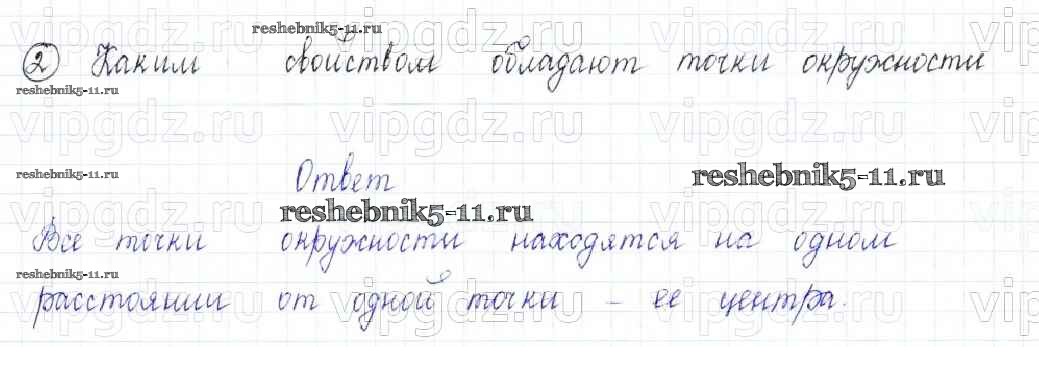 reshebnik5-11.ru
② Каким свойством обладают точки окружности
reshebnik5-11.ru
vipgdz.ru vipgdz.ru vipgdz.ru vipg
reshebnik5-11.ru Ответ reshebnik5-11.ru
reshebnik5-11.ru
Все точки окружности находятся на одном
reshebnik5-11.ru
расстоянии от одной точки – ее центра.
vipgdz.ru vipgdz.ru vipgdz.ru vip